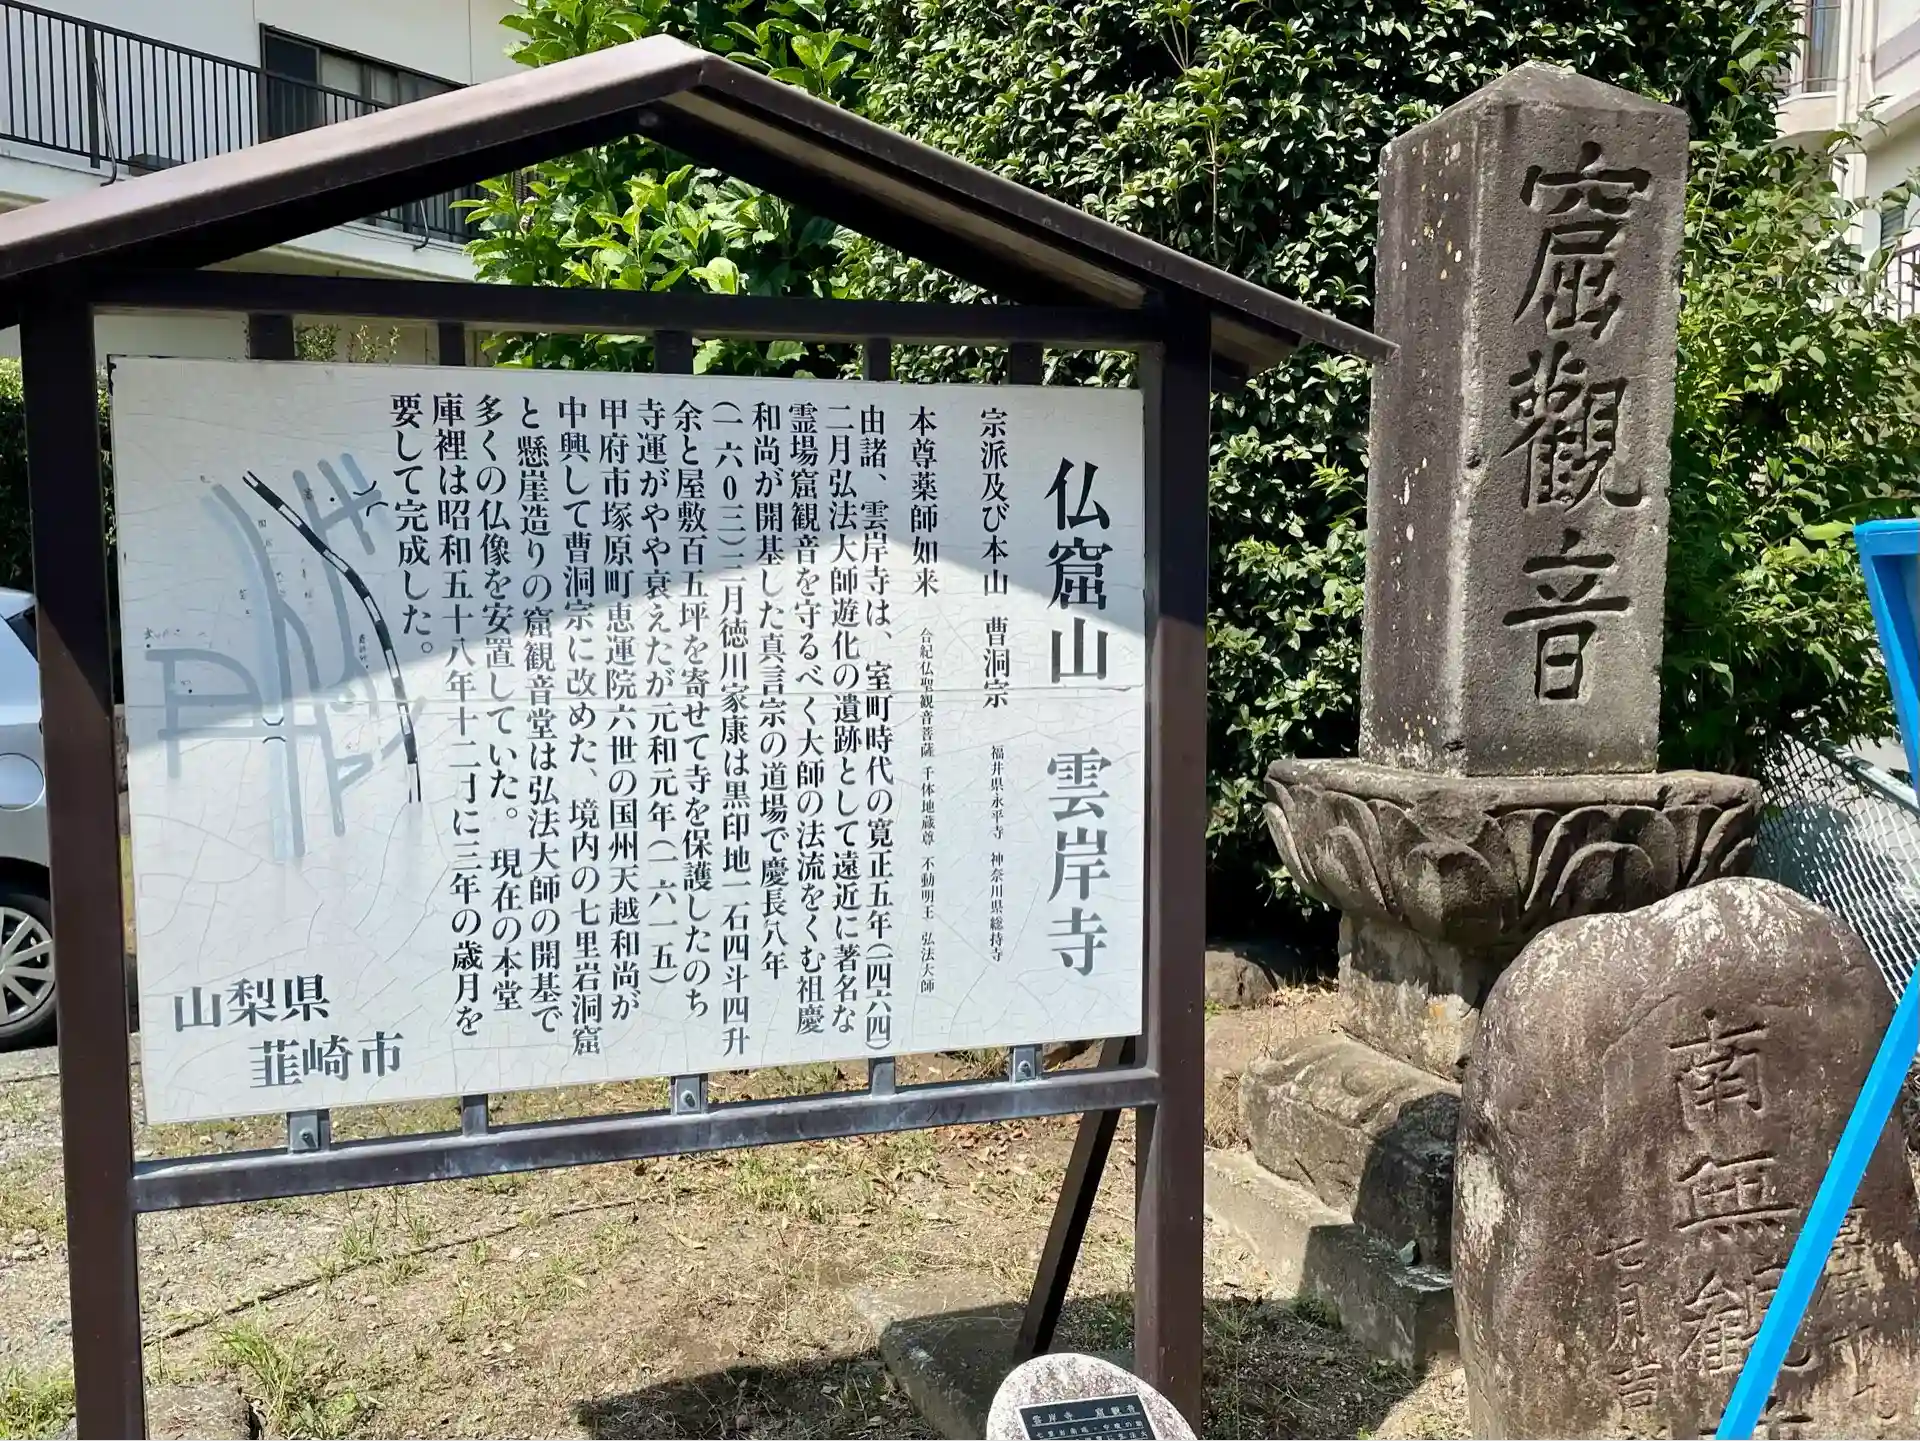 仏窟山 雲岸寺
宗派及び本山 曹洞宗 福井県永平寺 神奈川県総持寺
本尊薬師如来 合祀仏聖観音菩薩 千体地蔵尊 不動明王 弘法大師
由諸、雲岸寺は、室町時代の寛正五年(一四六四)
二月弘法大師遊化の遺跡として遠近に著名な
霊場窟観音を守るべく大師の法流をくむ祖慶
和尚が開基した真言宗の道場で慶長八年
(一六0三)三月徳川家康は黒印地一石四斗四升
余と屋敷百五坪を寄せて寺を保護したのち
寺運がやや衰えたが元和元年(一六一五)
甲府市塚原町恵運院六世の国州天越和尚が
中興して曹洞宗に改めた、境内の七里岩洞窟
と懸崖造りの窟観音堂は弘法大師の開基で
多くの仏像を安置していた。現在の本堂
庫裡は昭和五十八年十二月に三年の歳月を
要して完成した。
山梨県
韮崎市
窟觀音
南無觀
七月吉
雲岸寺 窟観音